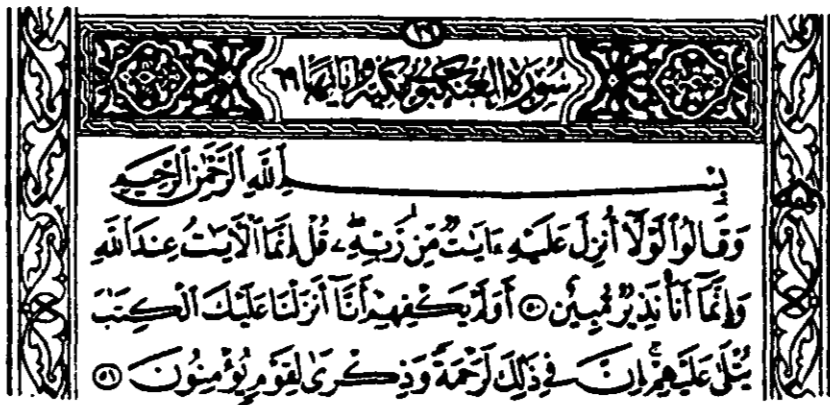 ٢٩
سُورَةُ العنكبوت مكية وآياتها ٦٩
بِسْمِ ٱللَّهِ ٱلرَّحْمَٰنِ ٱلرَّحِيمِ
وَقَالُوا۟ لَوْلَآ أُنزِلَ عَلَيْهِ ءَايَٰتٌ مِّن رَّبِّهِۦ ۖ قُلْ إِنَّمَا ٱلْءَايَٰتُ عِندَ ٱللَّهِ
وَإِنَّمَآ أَنَا۠ نَذِيرٌ مُّبِينٌ ٥٠ أَوَلَمْ يَكْفِهِمْ أَنَّآ أَنزَلْنَا عَلَيْكَ ٱلْكِتَٰبَ
يُتْلَىٰ عَلَيْهِمْ ۚ إِنَّ فِى ذَٰلِكَ لَرَحْمَةً وَذِكْرَىٰ لِقَوْمٍ يُؤْمِنُونَ ٥١